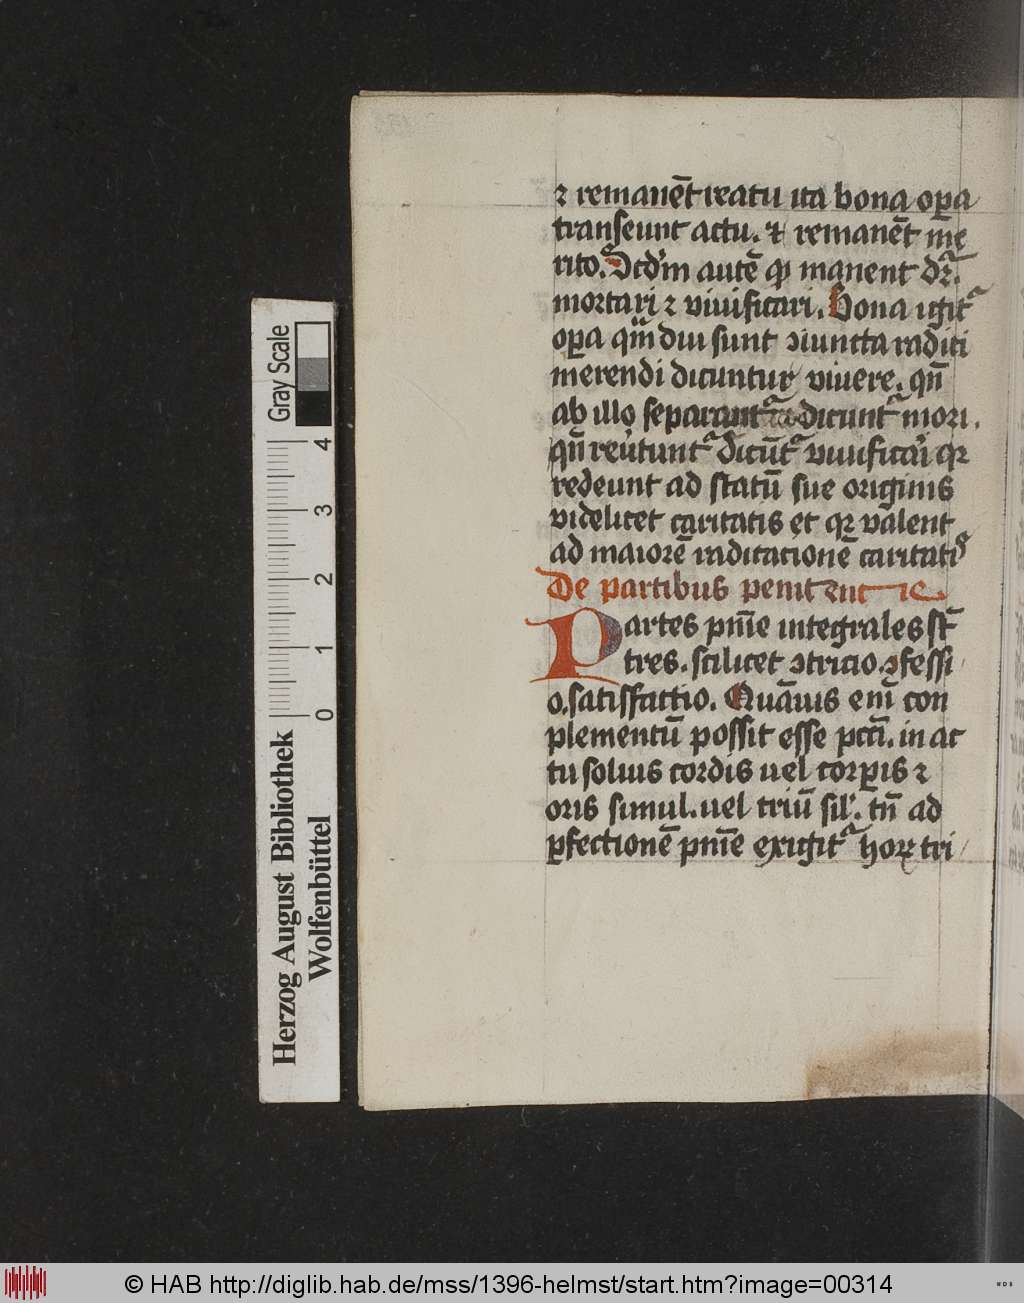 ⁊ remanēt reatu ita bona oꝑa
transeunt actu. ⁊ remanēt me
rito. autē manent dr̄.
mortari ⁊ viuificari. Bona igit᷑
oꝑa qm̄ diu sunt ꝯiuncta radici
merendi dicuntur viuere. qn̄
ab illo separant᷑ dicunt᷑ mori.
qn̄ reu͛tunt᷑ dicūt᷑ viuificari qꝛ
redeunt ad statū sue originis
videlicet caritatis et qꝛ valent
ad maiorē radicacionē caritatis
De partibus penitencie
Partes pnīe integrales st̄
tres. scilicet ꝯtricio. ꝯfessi
o. satisffactio. Quāuis enī con
plementū possit esse pctī. in ac
tu solius cordis uel corꝑis ⁊
oris simul. uel triū sil'. tn̄ ad
ꝑfectionē pnīe exigit᷑ hoꝝ tri
Gray Scale
4
3
2
1
0
Herzog August Bibliothek
Wolfenbüttel
© HAB http://diglib.hab.de/mss/1396-helmst/start.htm?image=00314
WDB